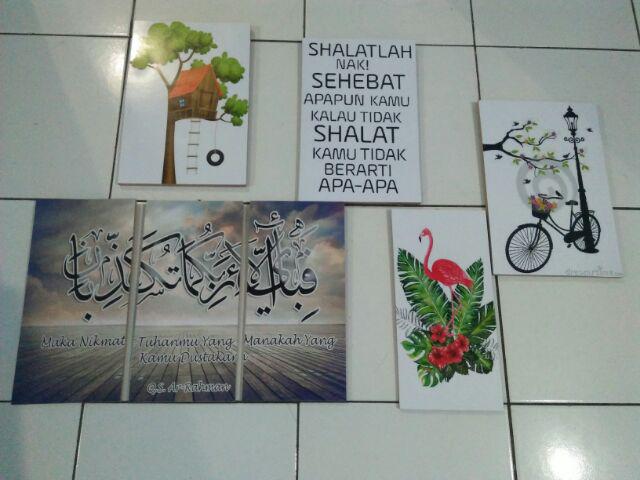 SHALATLAH
NAK!
SEHEBAT
APAPUN KAMU
KALAU TIDAK
SHALAT
KAMU TIDAK
BERARTI
APA-APA
فبأي آلاء ربكما تكذبان
Maka Nikmat Tuhanmu Yang Manakah Yang
Kamu Dustakan
Q.S. Ar-Rahman